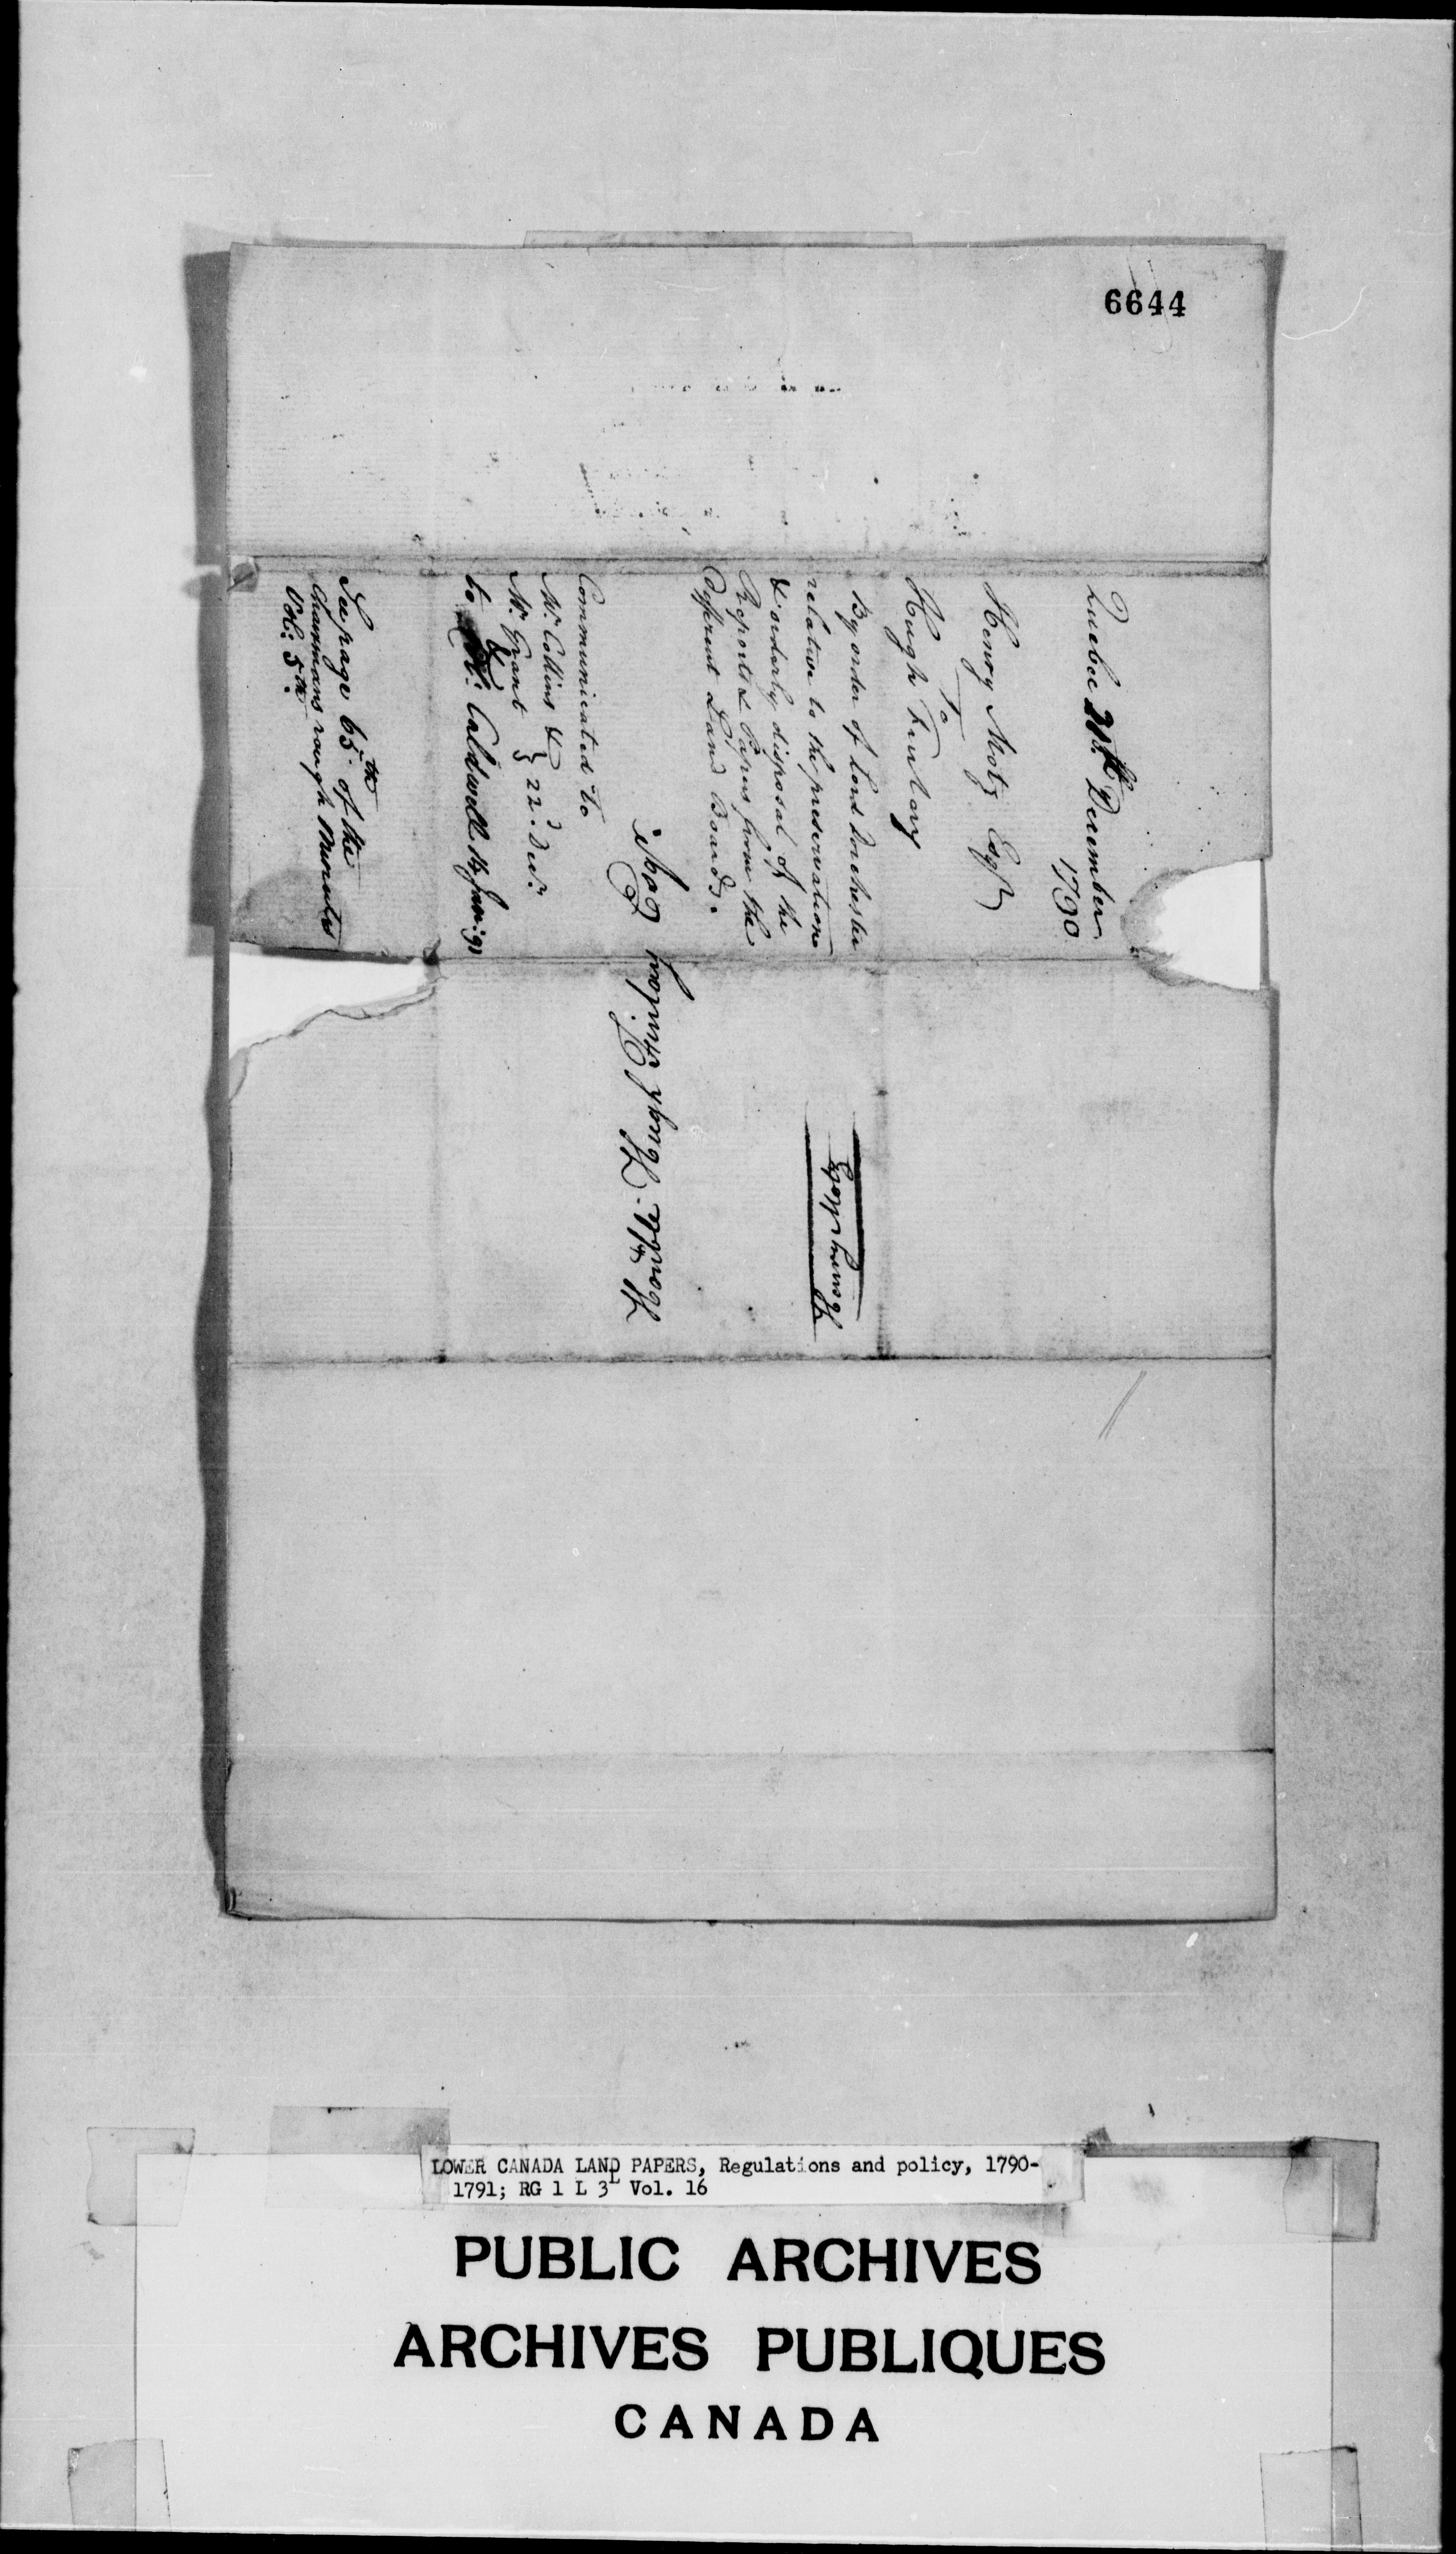 6644
Quebec 21st December
1790
Henry Motz Esqr
To
Hugh Finlay
By order of Lord Dorchester
relative to the preservation
& orderly disposal of the
Reports & Papers from the
different Land Boards.
Communicated to
Mr. Collins &
Mr. Grant } 22d. Decr.
&
to Col: Caldwell 14 Janr: 91
See page 65th of the
Chairmans rough Minutes
Vol: 5th.
Honble. Hugh Finlay
Henry Motz
LOWER CANADA LAND PAPERS, Regulations and policy, 1790-
1791; RG 1 L 3L Vol. 16
PUBLIC ARCHIVES
ARCHIVES PUBLIQUES
CANADA